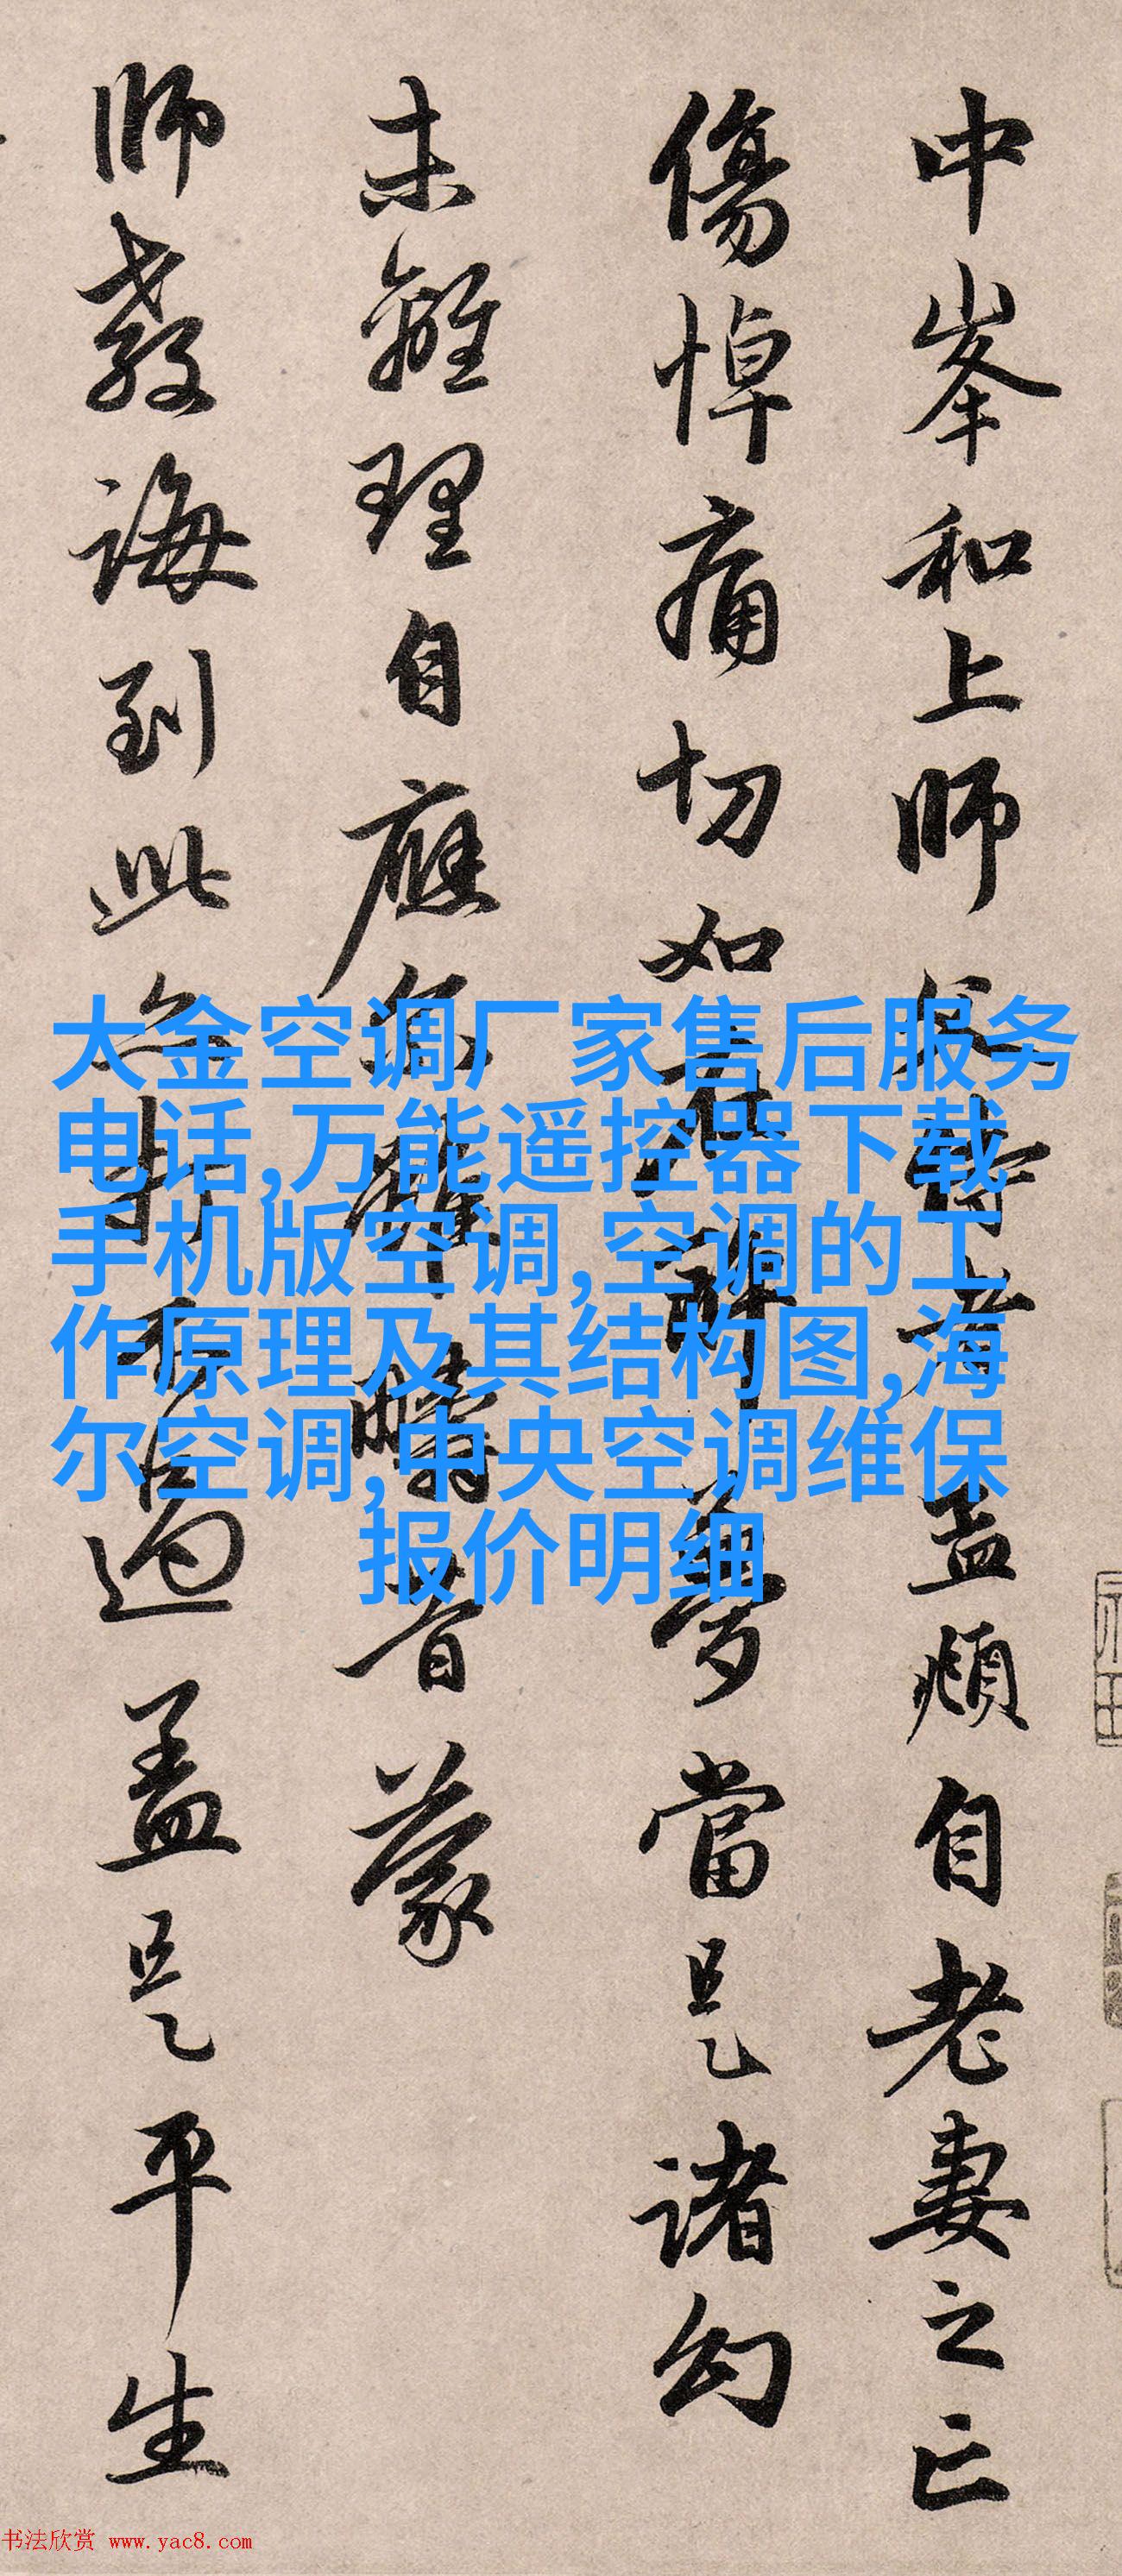 中峯和上师父侍者孟頫自老妻之亡
傷悼痛切如在醉夢當是諸幻
未離理自應尔雖疇昔蒙
師教誨到此亦打不過盖是平生
大金空调厂家售后服务
电话,万能遥控器下载
手机版空调,空调的工
作原理及其结构图,海
尔空调,中央空调维保
报价明细
书法欣赏 www.yac8.com